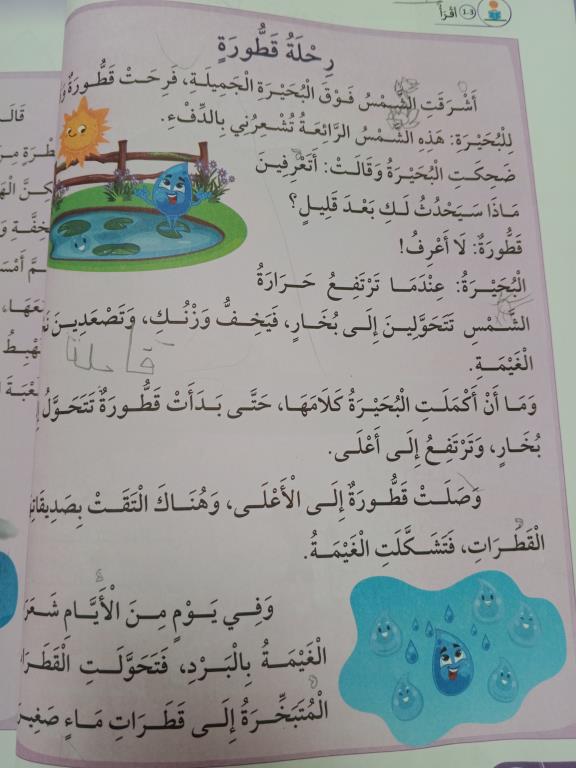 1-3 اقْرَأْ
رِحْلَةُ قَطُّورَةٍ
أَشْرَقَتِ الشَّمْسُ فَوْقَ الْبُحَيْرَةِ الْجَمِيلَةِ، فَرِحَتْ قَطُّورَةٌ
لِلْبُحَيْرَةِ: هَذِهِ الشَّمْسُ الرَّائِعَةُ تُشْعِرُنِي بِالدِّفْءِ.
ضَحِكَتِ الْبُحَيْرَةُ وَقَالَتْ: أَتَعْرِفِينَ
مَاذَا سَيَحْدُثُ لَكِ بَعْدَ قَلِيلٍ؟
قَطُّورَةٌ: لَا أَعْرِفُ!
الْبُحَيْرَةُ: عِنْدَمَا تَرْتَفِعُ حَرَارَةُ
الشَّمْسِ تَتَحَوَّلِينَ إِلَى بُخَارٍ، فَيَخِفُّ وَزْنُكِ، وَتَصْعَدِينَ
الْغَيْمَةِ.
وَمَا أَنْ أَكْمَلَتِ الْبُحَيْرَةُ كَلَامَهَا، حَتَّى بَدَأَتْ قَطُّورَةٌ تَتَحَوَّلُ
بُخَارٍ، وَتَرْتَفِعُ إِلَى أَعْلَى.
وَصَلَتْ قَطُّورَةٌ إِلَى الْأَعْلَى، وَهُنَاكَ الْتَقَتْ
الْقَطَرَاتِ، فَتَشَكَّلَتِ الْغَيْمَةُ.
وَفِي يَوْمٍ مِنَ الْأَيَّامِ
الْغَيْمَةُ بِالْبَرْدِ، فَتَحَوَّلَتِ
الْمُتَبَخِّرَةُ إِلَى قَطَرَاتِ مَاءٍ